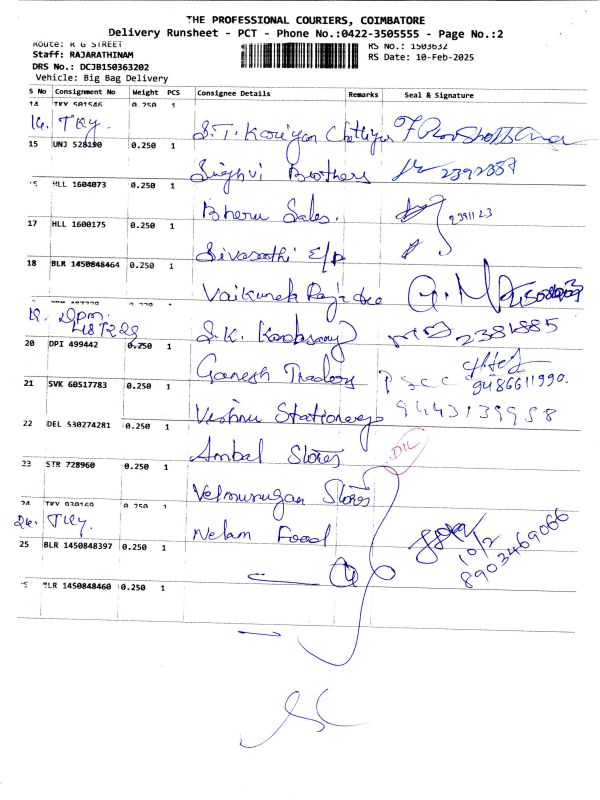 THE PROFESSIONAL COURIERS, COIMBATORE
Delivery Runsheet - PCT - Phone No.:0422-3505555 - Page No.:2
Route: R G STREET
RS No.: 1503632
Staff: RAJARATHINAM
RS Date: 10-Feb-2025
DRS No.: DCJB150363202
Vehicle: Big Bag Delivery
S No Consignment No Weight PCS Consignee Details Remarks Seal & Signature
14 TKY 501546 0.250 1
14. TKY. S.T. Chettiyar
15 UNJ 528190 0.250 1
Singhvi Brothers 2392337
HLL 1604073 0.250 1
Bheru Sales. 2391123
17 HLL 1600175 0.250 1
Sivasathi E/P
18 BLR 1450848464 0.250 1
Vaikunth
19. Dpm.
487229
S.K. Kandasamy 2381885
20 DPI 499442 0.250 1
Ganesh Traders 9486611990.
21 SVK 60517783 0.250 1
Vishnu Stationery 9443139958
22 DEL 530274281 0.250 1
Ambal Stores D/L
23 STR 728960 0.250 1
Velmurugan Stores
24 TKY 930169 0.250 1
24. TKY. Nelam Food
10/2
8903469066
25 BLR 1450848397 0.250 1
BLR 1450848460 0.250 1